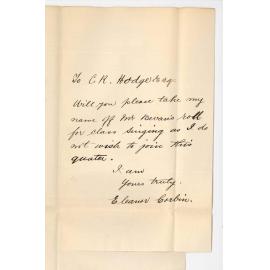 To C. R. Hodge Esq.
Will you please take my
name off Mr Bevan's roll
for class singing as I do
not wish to join this
quater.
I am
Yours truly.
Eleanor Corbin.